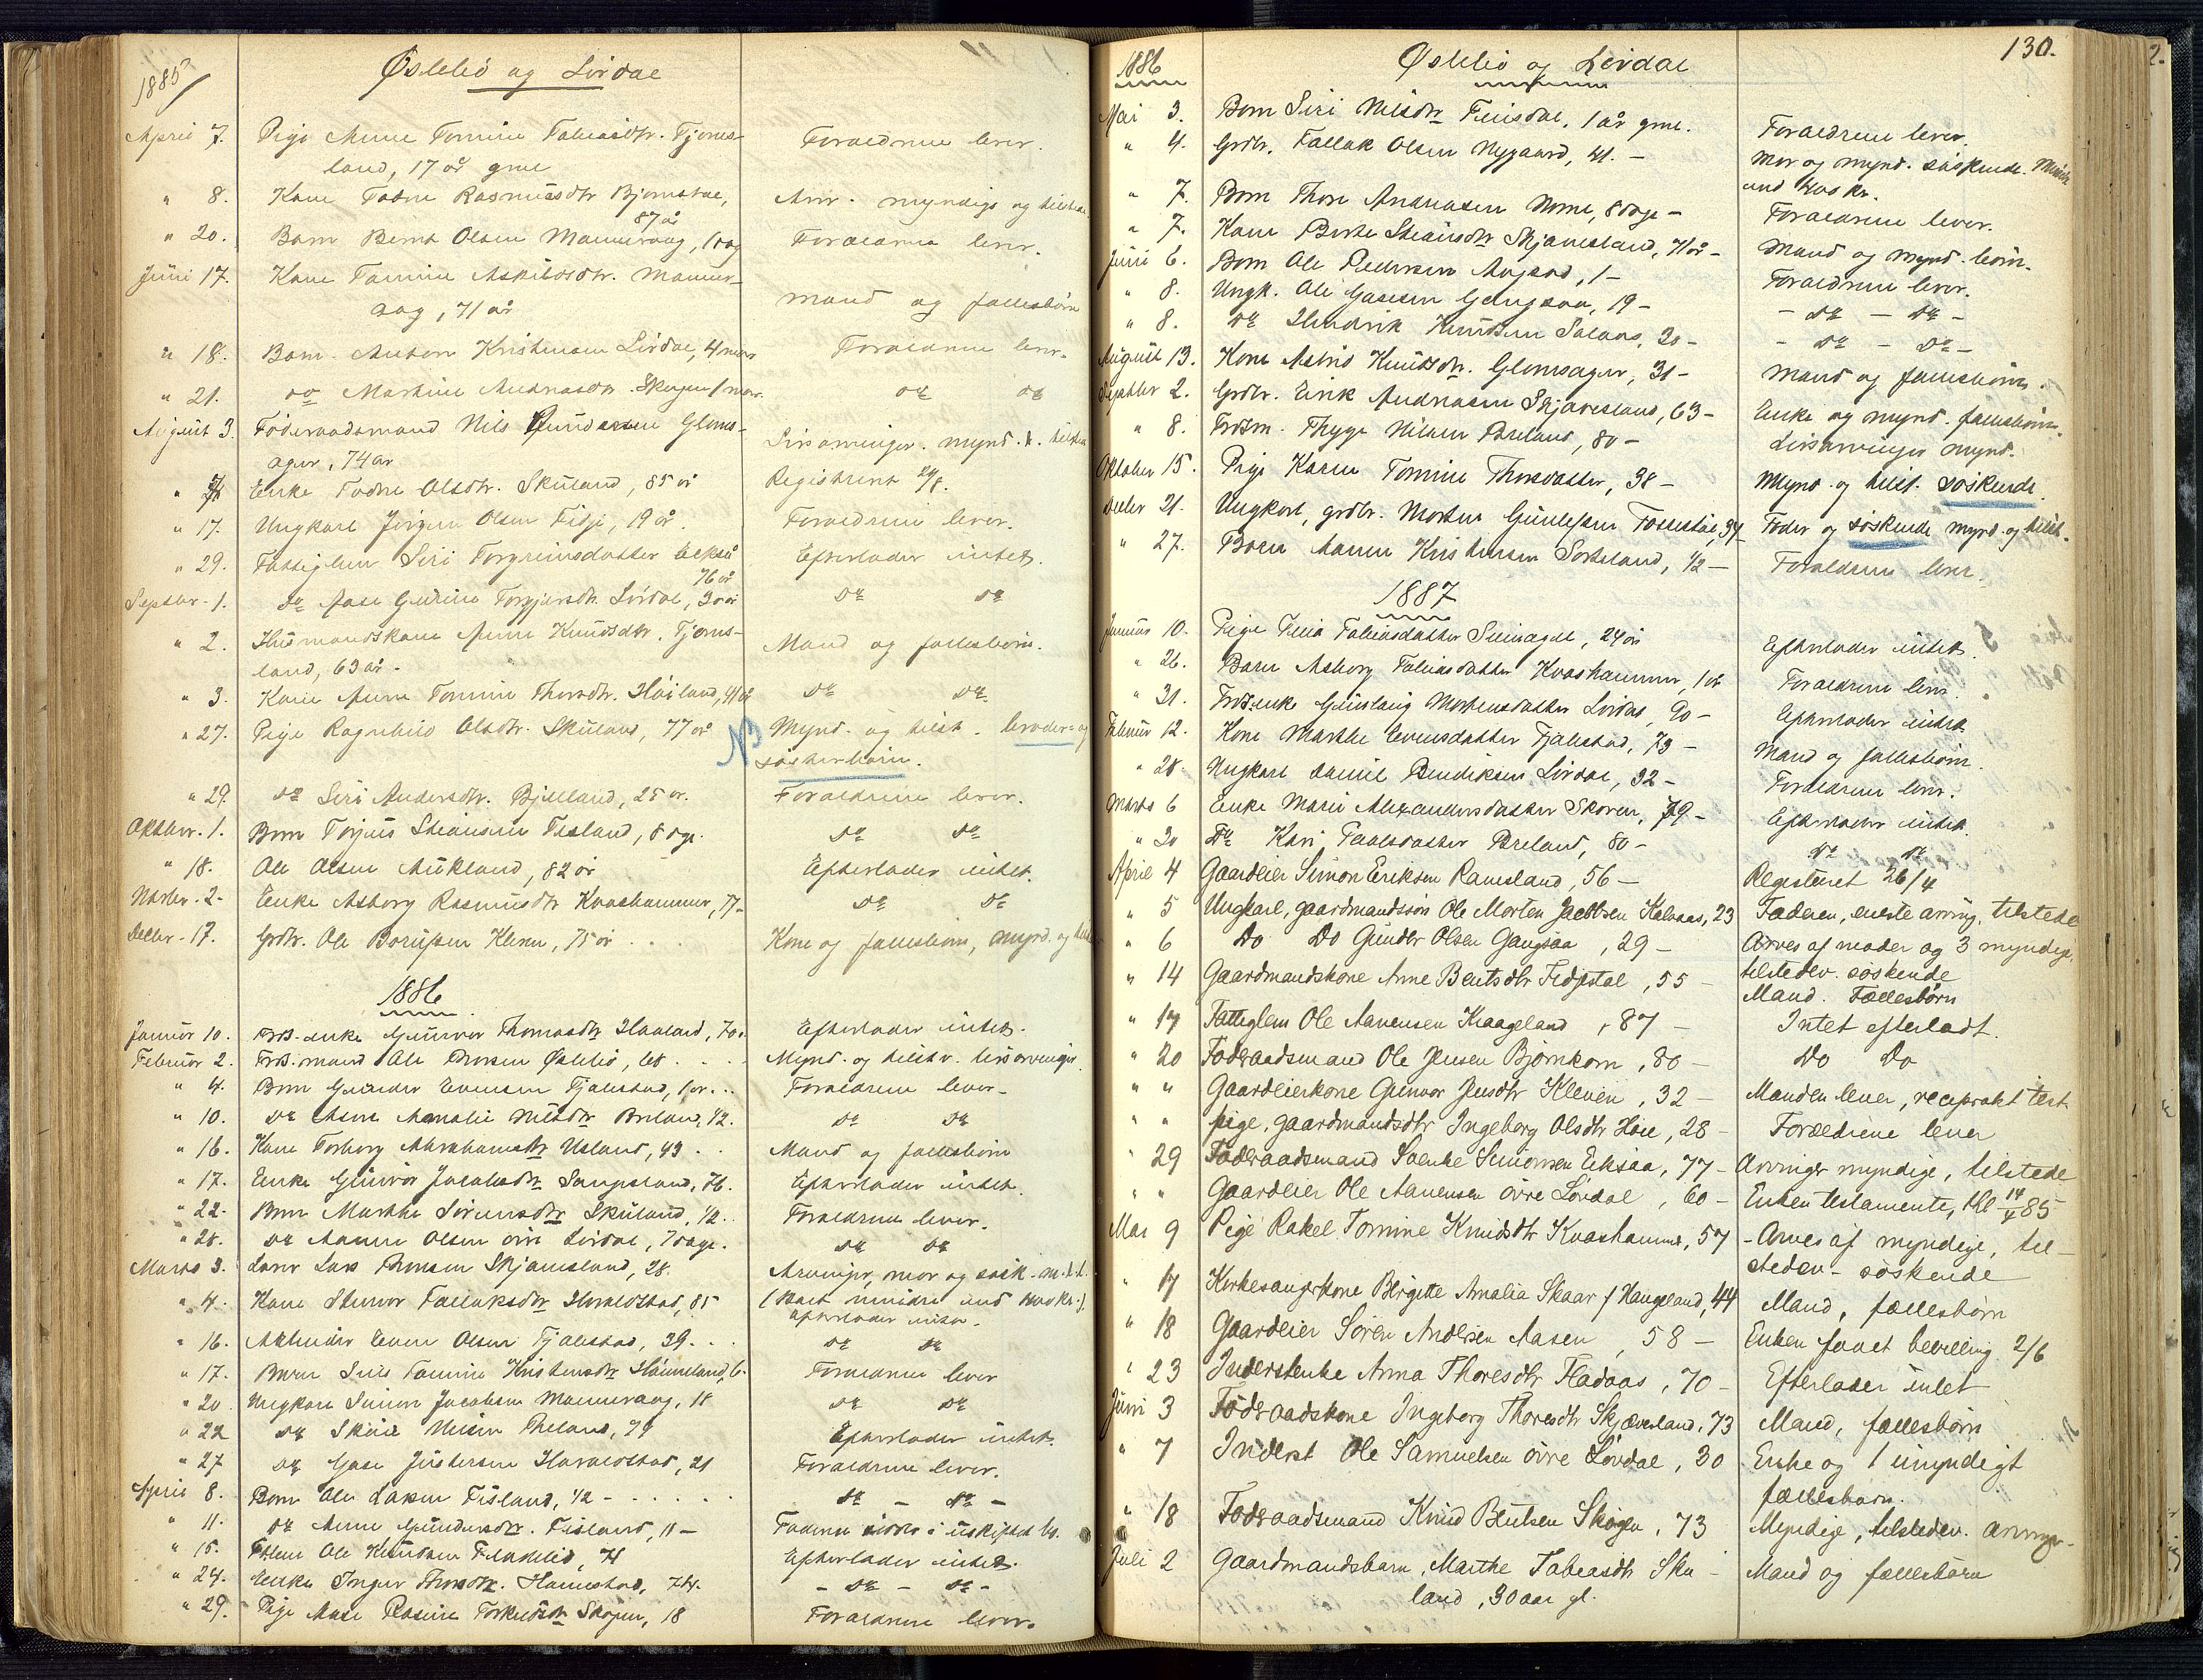 1885
Øslebö og Lövdal
April 7. Pige Anne Tomine Tobiasdtr. Tjoms-
land, 17 år gml
Forældrene lever.
" 8. Kone Todne Rasmusdtr Bjornstøl,
87 år
Arv. myndige og tilstede
" 20. Barn Bernt Olsen Monnevaag, 1 dag
Forældrene lever.
Juni 17. Kone Tomine Askildsdtr. Monne-
vog, 71 år
Mand og fællesbörn
" 18. Barn Anton Kristensen Lövdal, 4 mdr
Forældrene lever.
" 21. do Martine Andreasdtr. Skogen 1 mdr.
do do
August 3. Föderaadsmand Nils Gundersen Gloms-
ager, 74 år
Livsarvinger. mynd. &. tilstede
Enke Todne Olsdtr. Skuland, 85 år
Registreret 24/8.
" 17. Ungkarl Jörgen Olsen Fidje, 19 år.
Forældrene lever.
" 29. Fattiglem Siri Torgrimsdatter Eeksaa
76 år
Efterlader intet.
Septbr. 1. do Aase Gurine Torgjersdtr. Lövdal, 30 år
do do
" 2. Husmandskone Anne Knudsdtr. Tjoms-
land, 63 år.
Mand og fællesbörn.
" 3. Kone Anne Tomine Thorsdtr. Höiland, 41 år
do do
" 27. Pige Ragnhild Olsdtr. Skuland, 77 år
NB Mynd. og tilst. broder- og
søsterbörn.
" 29. do Siri Andersdtr. Bjelland, 25 år.
Forældrene lever.
Oktbr. 1. Barn Torjus Stiansen Fesland, 8 dge.
do do
" 18. Ole Olsen Aukland, 82 år
Efterlader intet.
Novbr. 2. Enke Asborg Rasmusdtr Kvashammer, 77-
do do
Decbr. 17. Grdbr. Ole Borufsen Kleven, 75 år
Kone og fællesbörn, mynd. og tilst
1886
Januar 10. Frd.enke Gunvor Thomasdtr Haaland, 70.
Efterlader intet.
Februar 2. Frd.mand Ole Omsen Øslebö, 68
Mynd. og tilstv. livsarvinger.
" 4. Barn Gunder Evensen Fjælestad, 1 år
Forældrene lever.
" 10. do Anne Amalie Nilsdtr Breland, 1/2.
do do
" 16. Kone Torborg Abrahamsdtr Usland, 49
Mand og fællesbörn
" 17. Enke Gunvor Jacobsdtr Sangesland, 76.
Efterlader intet.
" 22. Barn Marthe Sörensdtr Skuland, 1/2.
Forældrene lever.
" 28. do Aanen Olsen övre Lövdal, 7 dage.
do do
Marts 3. Lærer Lars Omsen Skjævesland, 28.
Arvinger, mor og søsk. m.t.t.
(Boet mindre end 4000 Kr.).
" 4. Kone Gunvor Tallaksdtr Haraldstad, 85
Efterlader intet.
" 16. Arbeider Even Olsen Fjælestad, 39.
do do
" 17. Barn Sille Tomine Kristensdtr Haugeland, 6.
Forældrene lever
" 20. Ungkarl Simon Jacobsen Monnevaag, 18
do do
" 22 do Skeie Nilsen Theland, 79
Efterlader intet.
" 27 do Gase Justersen Haraldstad, 21
Forældrene lever.
April 8. Barn Ole Larsen Fisland, 1/2 -
do - do -
" 11. do Anne Gundersdtr. Fisland, 11 -
Faderen sidder i uskiftet bo.
" 15. Ftlem Ole Knudsen Finddal, 74
Efterlader intet.
" 24. Enke Inger Thorsdtr. Haanestad, 74.
- do - do -
" 29. Pige Aase Rasine Torkildsdtr Skogen, 18
Forældrene lever.
1886
Øslebö og Lövdal
130.
Mai 3. Barn Siri Nilsdtr Finsdal, 1 år gml.
Forældrene lever.
" 4. Grdbr. Tallak Olsen Nygaard, 41. -
Mor og mynd. söskende. Mindre
end 4000 kr.
" 7. Barn Thore Andreasen Nome, 8 dage -
Forældrene lever.
" 7. Kone Berte Stiansdtr Skjævesland, 71 år -
Mand og mynd. börn.
Juni 6. Barn Ole Pedersen Augsad, 1 -
Forældrene lever.
" 8. Ungk. Ole Gasesen Gangsaa, 19 -
- do - do -
" 8. do Hendrik Knudsen Solaas, 30 -
- do - do -
August 13. Kone Astrid Knudsdtr. Glomsager, 31 -
Mand og fællesbörn.
Septbr 2. Grdbr. Eirik Andreasen Skjævesland, 63 -
Enke og mynd. fællesbörn.
" 8. Frdm. Thyge Nilsen Breland, 80 -
Livsarvinger mynd.
Oktober 15. Pige Karen Tomine Thorsdatter, 38 -
Mynd. og tilst. söskende.
Decbr 21. Ungkarl, grdbr. Morten Gunleksen Tonnestøl, 34
Fader og söskende mynd. og tilst.
" 27. Barn Aanen Kristensen Sorteland, 1/2 -
Forældrene lever.
1887
Januar 10. Pige Tilia Tobiasdatter Steinsgal, 24 år
Efterlader intet.
" 26. Barn Asborg Tobiasdatter Kvashammer, 1 år
Forældrene lever.
" 31. Frd.enke Gunlaug Mortensdatter Lövdal, 90 -
Efterlader intet.
Februar 12. Kone Marthe Evensdatter Fjælestad, 73 -
Mand og fællesbörn.
" 28. Ungkarl Daniel Bendiksen Lövdal, 32 -
Forældrene lever.
Marts 6 Enke Marie Alexandersdatter Skoven, 79 -
Efterlader intet.
" 30 do Kari Paalsdatter Breland, 80 -
do do
April 4 Gaardeier Simon Eriksen Ramesland, 56 -
Registeret 26/4
" 5 Ungkarl, gaardmandssön Ole Morten Jacobsen Kalvaas, 23
Faderen, eneste arving. tilstede
" 6 Do Do Gunder Olsen Gangsaa, 29 -
Arves af moder og 3 myndige,
tilstedev. söskende
" 14 Gaardmandskone Anne Bentsdtr Fidjestøl, 55 -
Mand. Fællesbörn
" 17 Fattiglem Ole Aanensen Kraageland, 87 -
Intet efterladt.
" 20 Föderaadsmand Ole Jensen Bjornkom, 80 -
Do Do
" " Gaardeierkone Gunvor Jensdtr Kleven, 32 -
Manden lever, reciprokt test
" " pige, gaardmandsdtr Ingeborg Olsdtr Höie, 28 -
Forældrene lever
" 29 Föderaadsmand Svenke Simonsen Eeksaa, 77 -
Arvinger myndige, tilstede
" " Gaardeier Ole Aanensen övre Lövdal, 60 -
Enken testamente, thl 14/4 85
Mai 9 Pige Rakel Tomine Knudsdtr Kvashammer, 57
- Arves af myndige, til-
stedev- söskende
" 17 Kirkesangerkone Birgitte Amalia Skaar f Haugeland, 44
Mand, fællesbörn
" 18 Gaardeier Sören Andersen Aasen, 58 -
Enken faaet bevilling 2/6
" 23 Inderstenke Anna Thoresdtr Fladaas, 70 -
Efterlader intet
Juni 3 Föderaadskone Ingeborg Thoresdtr Skjæveland, 73
Mand, fællesbörn
" 7 Inderst Ole Samuelsen övre Lövdal, 30
Enke og 1 umyndigt
fællesbarn.
" 18 Föderaadsmand Knud Bentsen Skogen, 73
Myndige, tilstedev. arvinger
Juli 2 Gaardmandsbarn, Marthe Tobiasdtr Sku-
land, 30 aar gl.
Mand og fællesbörn